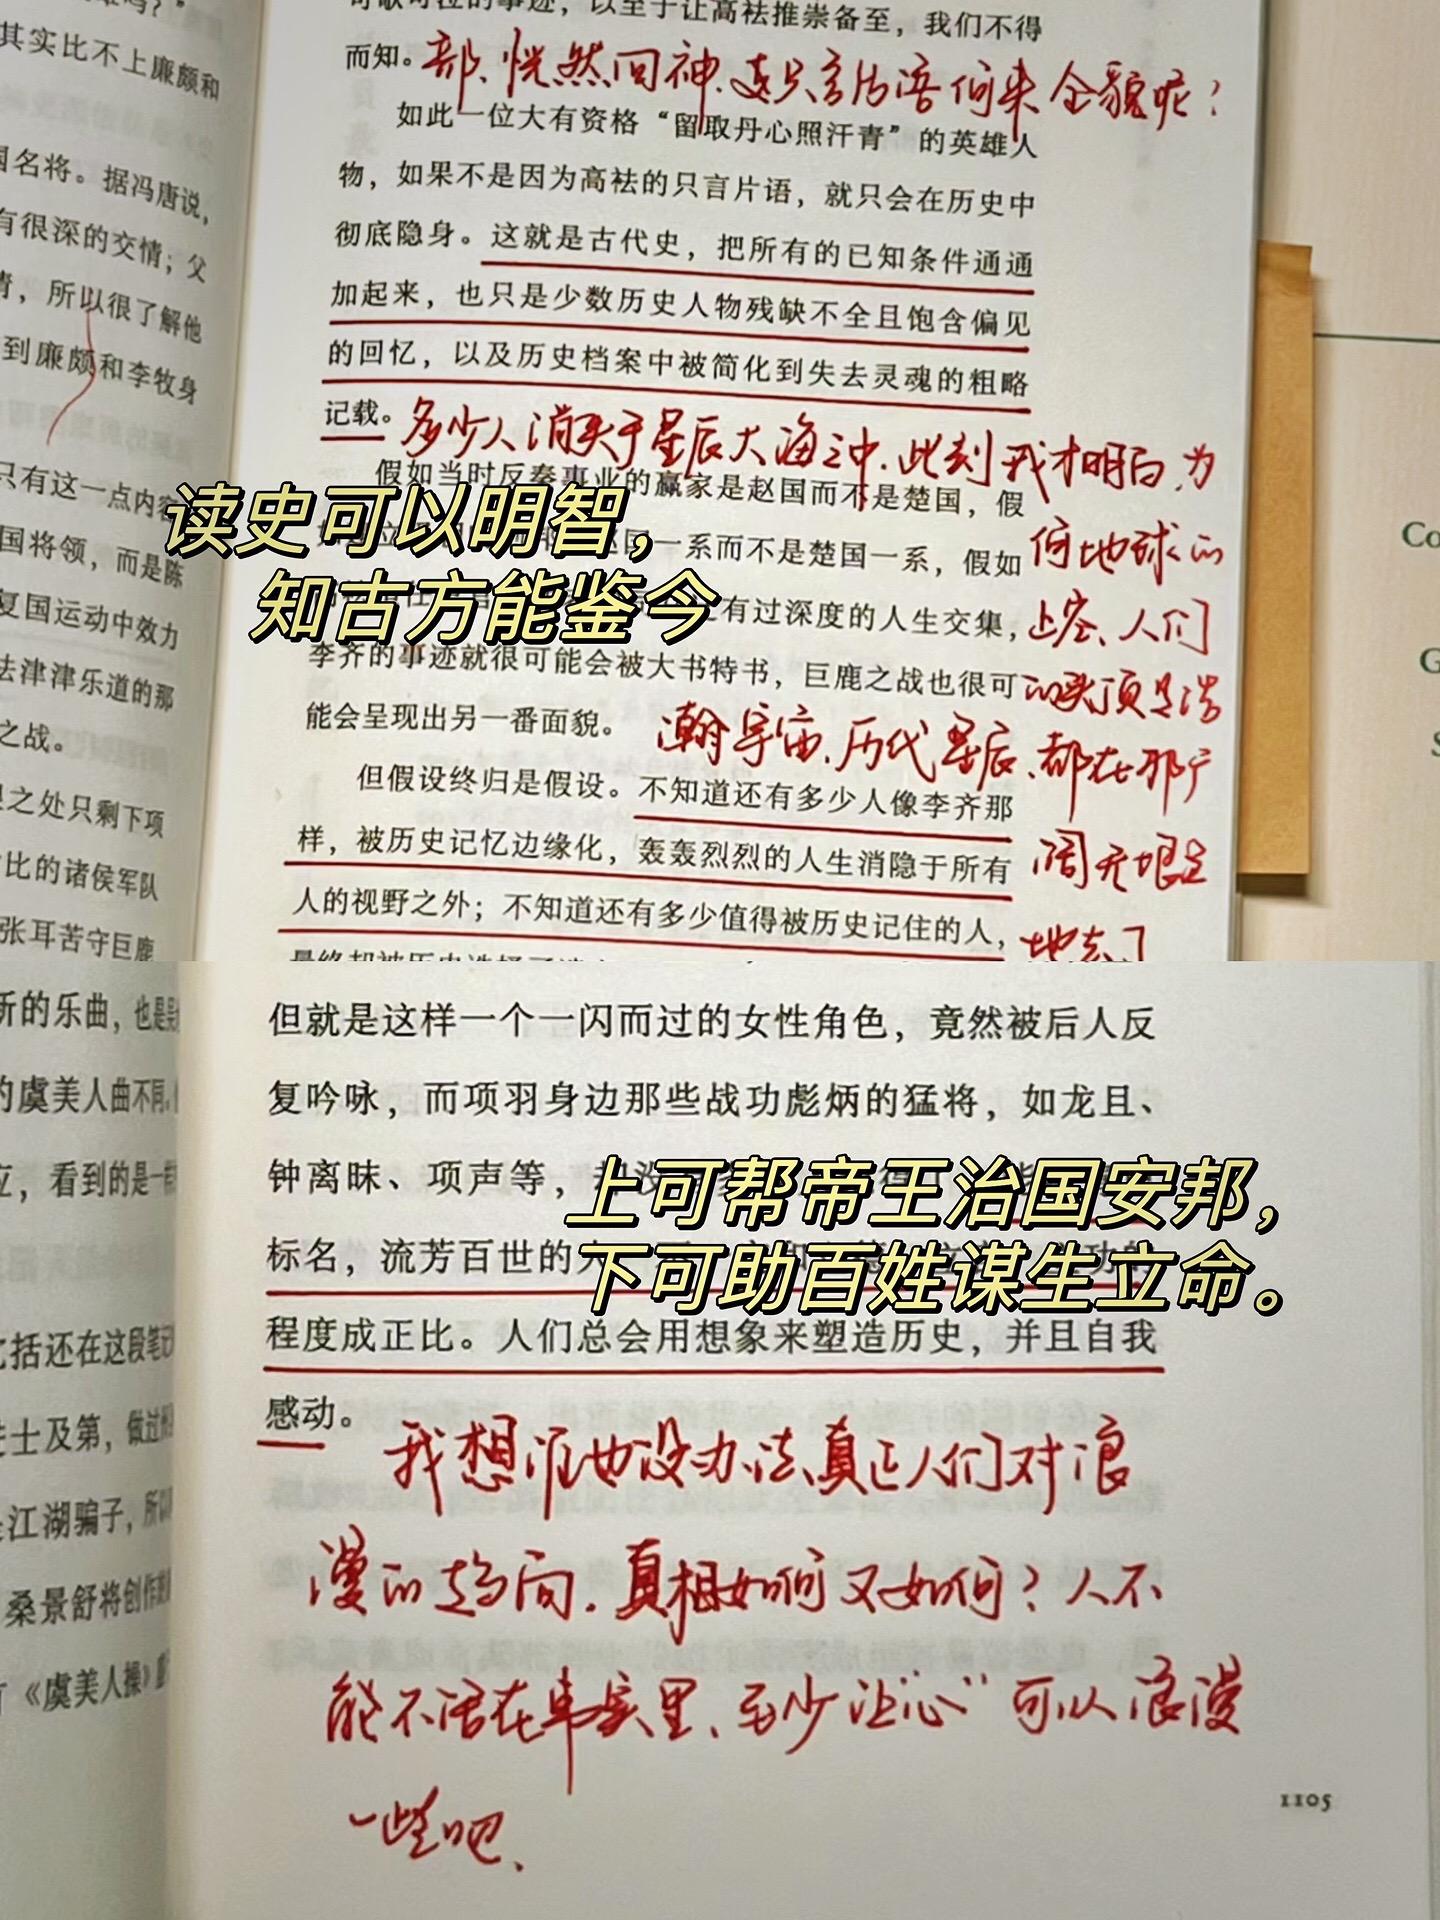 其实比不上廉颇和
国名将。据冯唐说，
有很深的交情；父
青，所以很了解他
到廉颇和李牧身
只有这一点内容
国将领，而是陈
复国运动中效力
法津津乐道的那
之战。
之处只剩下项
比的诸侯军队
张耳苦守巨鹿
可歌可泣的事迹，以至于让高祛推崇备至，我们不得
而知。
部、恍然回神，这只言片语何来全貌呢？
如此一位大有资格“留取丹心照汗青”的英雄人
物，如果不是因为高祛的只言片语，就只会在历史中
彻底隐身。这就是古代史，把所有的已知条件通通
加起来，也只是少数历史人物残缺不全且饱含偏见
的回忆，以及历史档案中被简化到失去灵魂的粗略
记载。
多少人消失于星辰大海之中，此刻我才明白，为
何地球的
上空、人们
的头顶是浩
瀚宇宙，历代星辰，都在那广
阔无垠之
地去了
假如当时反秦事业的赢家是赵国而不是楚国，假
国一系而不是楚国一系，假如
有过深度的人生交集，
李齐的事迹就很可能会被大书特书，巨鹿之战也很可
能会呈现出另一番面貌。
但假设终归是假设。不知道还有多少人像李齐那
样，被历史记忆边缘化，轰轰烈烈的人生消隐于所有
人的视野之外；不知道还有多少值得被历史记住的人，
读史可以明智，
知古方能鉴今
Co
G
S
新的乐曲，也是吴
的虞美人曲不同。
应，看到的是一
括还在这段笔记
进士及第，做过
江湖骗子，所
桑景舒将创作
《虞美人操》
但就是这样一个一闪而过的女性角色，竟然被后人反
复吟咏，而项羽身边那些战功彪炳的猛将，如龙且、
钟离昧、项声等，却没
标名，流芳百世的
程度成正比。人们总会用想象来塑造历史，并且自我
感动。
上可帮帝王治国安邦，
下可助百姓谋生立命。
我想谁也没办法真正人们对浪
漫的趋向，真相如何又如何？人不
能不活在事实里，至少让“心”可以浪漫
一些吧、
1105